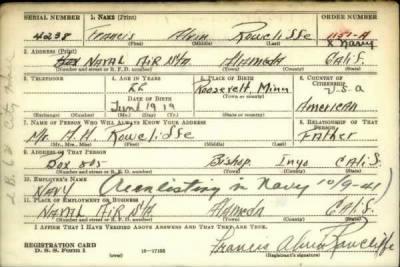 SERIAL NUMBER 1. NAME (Print) ORDER NUMBER
4238 Francis Alvin Rowcliffe 1151-A
(First) (Middle) (Last) X Navy
2. ADDRESS (Print)
NAVAL AIR STA Alameda Calif.
(Number and street or R. F. D. number) (Town) (County) (State)
3. TELEPHONE 4. AGE IN YEARS 5. PLACE OF BIRTH 6. COUNTRY OF CITIZENSHIP
Roosevelt, Minn U-S-a
DATE OF BIRTH (Town or county)
June 1919 American
(Exchange) (Number) (Mo.) (Day) (Yr.) (State or country)
7. NAME OF PERSON WHO WILL ALWAYS KNOW YOUR ADDRESS 8. RELATIONSHIP OF THAT PERSON
Mr. A.H. Rowcliffe FATHER
(Mr., Mrs., Miss) (First) (Middle) (Last)
9. ADDRESS OF THAT PERSON
Box 205 Bishop Inyo Calif.
(Number and street or R. F. D. number) (Town) (County) (State)
10. EMPLOYER'S NAME
NAVY (Reenlisting in Navy 10/9-41)
11. PLACE OF EMPLOYMENT OR BUSINESS
NAVAL AIR STA Alameda Calif.
(Number and street or R. F. D. number) (Town) (County) (State)
I AFFIRM THAT I HAVE VERIFIED ABOVE ANSWERS AND THAT THEY ARE TRUE.
REGISTRATION CARD
D. S. S. Form 1 16—17105 Francis Alvin Rowcliffe
(Registrant's signature)